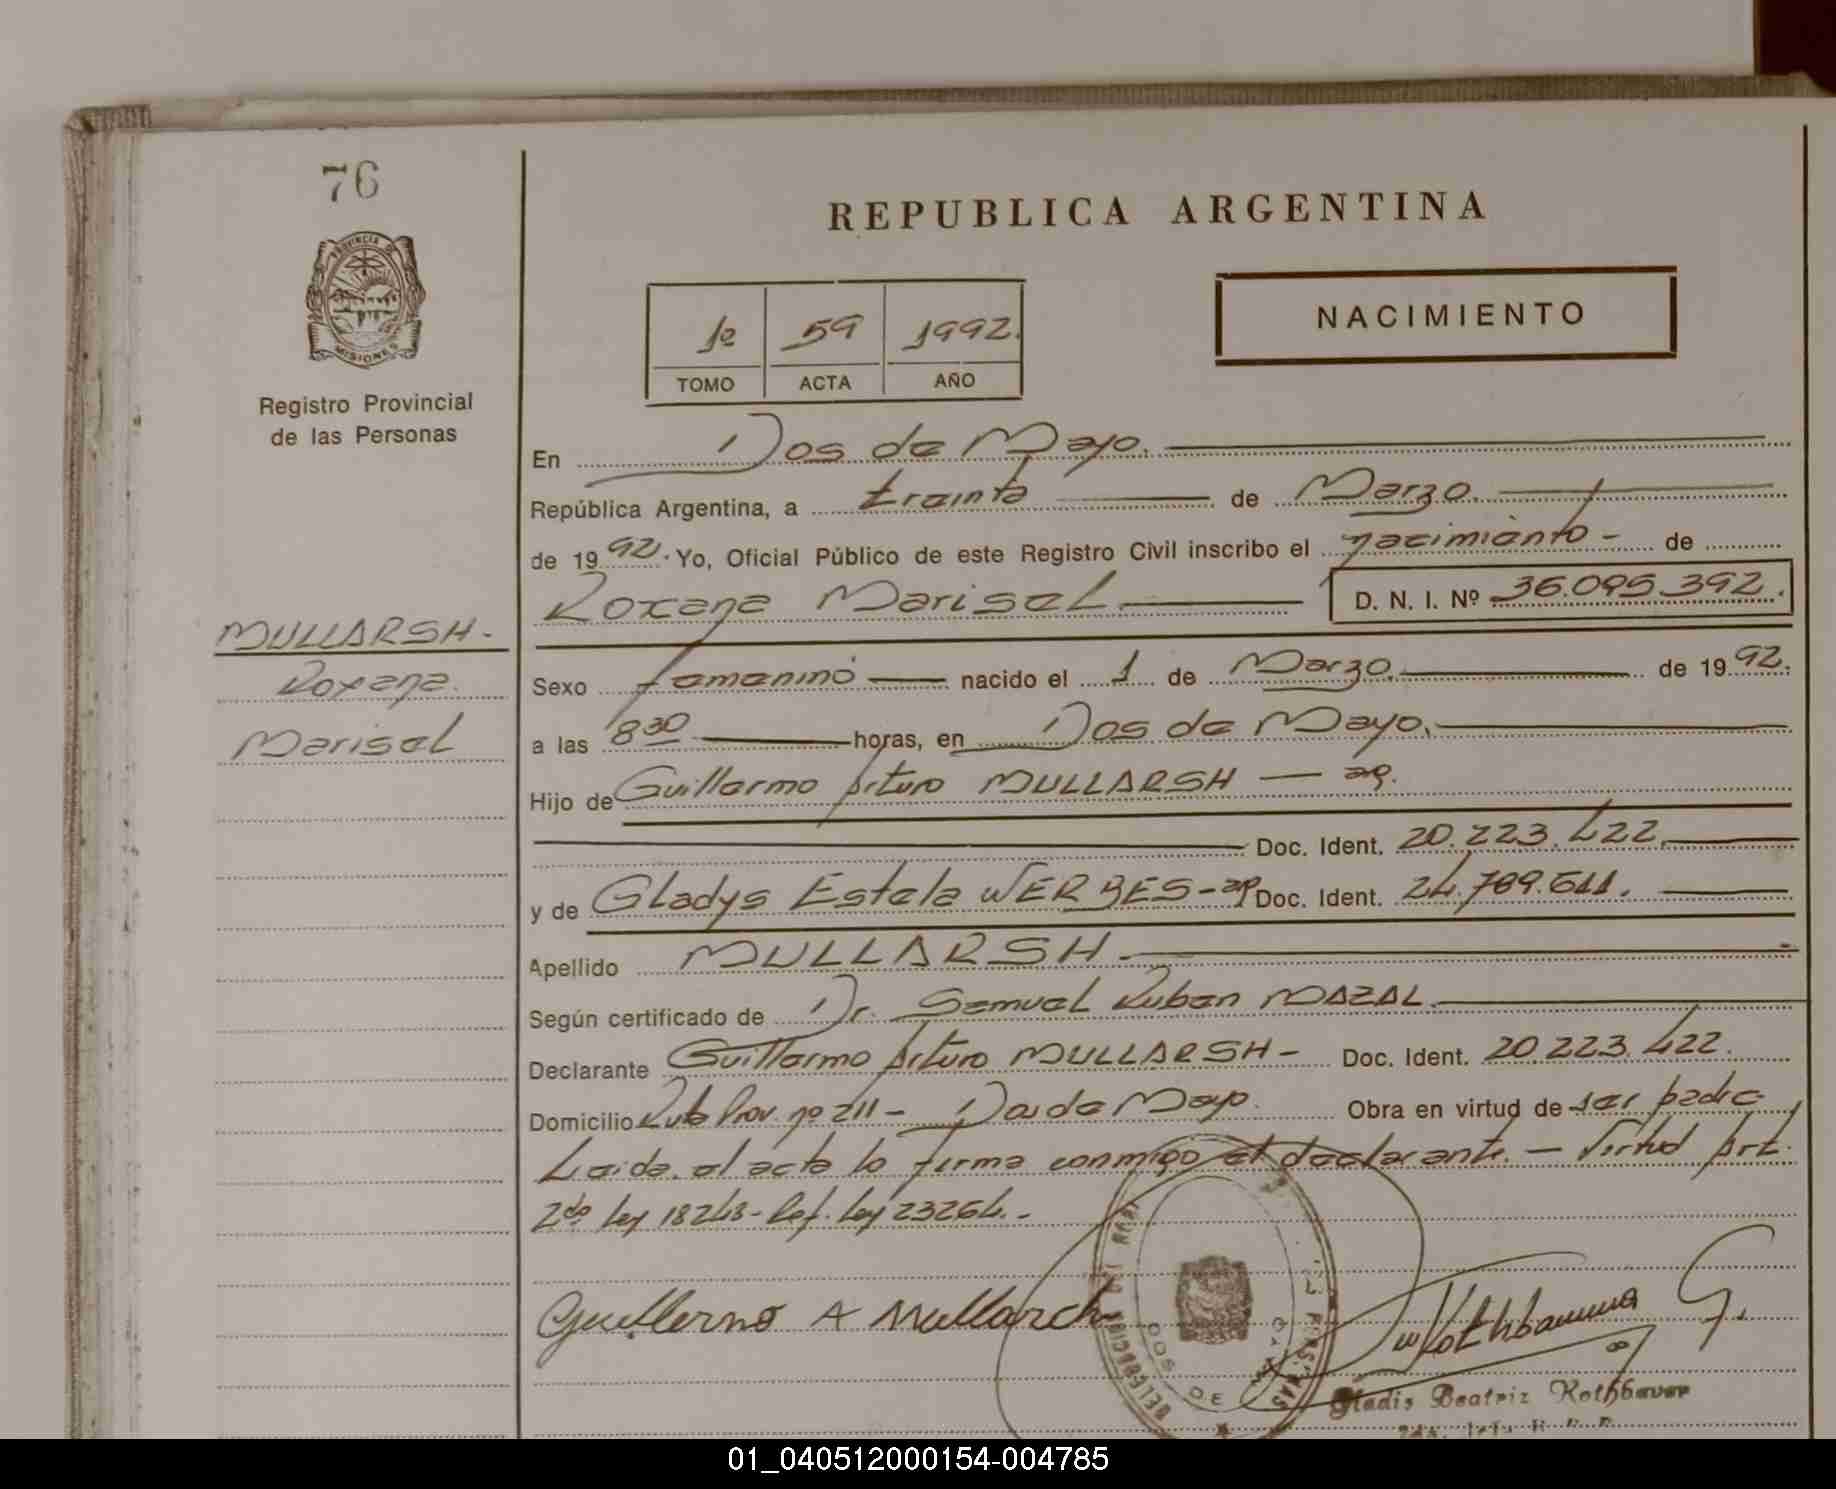 76
REPUBLICA ARGENTINA
PROVINCIA DE
MISIONES
Registro Provincial
de las Personas
1º 59 1992.
TOMO ACTA AÑO
NACIMIENTO
En Dos de Mayo.
República Argentina, a treinta de Marzo.
de 1992. Yo, Oficial Público de este Registro Civil inscribo el nacimiento - de
Roxana Marisel D. N. I. Nº 36.095.392.
MULLARSH.
Roxana.
Marisel
Sexo femenino nacido el 1 de Marzo. de 1992.
a las 8 30 horas, en Dos de Mayo.
Hijo de Guillermo Arturo MULLARSH — ap.
Doc. Ident. 20.223.422.
y de Gladys Estela WERBES - ap Doc. Ident. 24.789.611.
Apellido MULLARSH
Según certificado de Dr. Samuel Ruben MAZAL.
Declarante Guillermo Arturo MULLARSH - Doc. Ident. 20.223.422.
Domicilio Ruta Prov. nº 211 - Dos de Mayo. Obra en virtud de ser padre
Leida el acta lo firma conmigo el declarante. — Virtud Art.
2do Ley 18248 - Ref. Ley 23264. -
Guillermo A Mullarch
Rothbauer G.
DOS DE
Gladis Beatriz Rothbauer
01_040512000154-004785